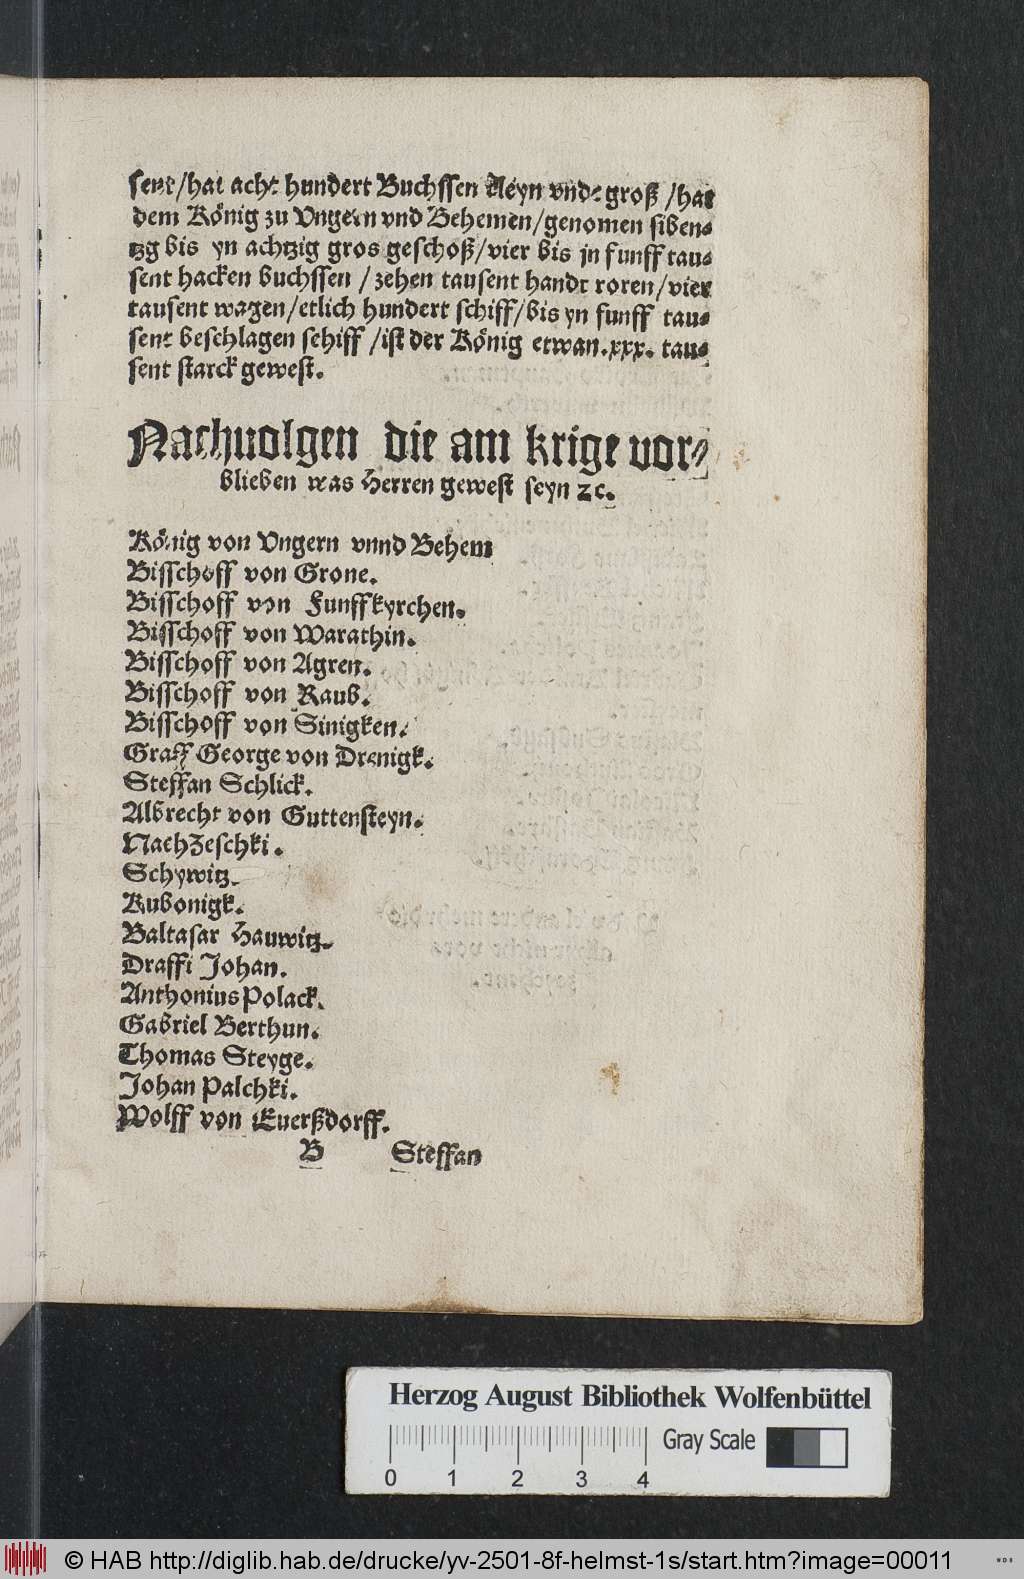 sent/hat acht hundert Buchssen kleyn vnde groß/hat
dem König zu Vngern vnd Behemen/genomen siben-
tzg bis yn achtzig gros geschoß/vier bis jn funff tau-
sent hacken buchssen/zehen tausent handt roren/vier
tausent wagen/etlich hundert schiff/bis yn funff tau-
sent beschlagen schiff/ist der König etwan.xxx. tau-
sent starck gewest.
Nachuolgen die am krige vor-
blieben was Herren gewest seyn ⁊c.
König von Vngern vnnd Behem
Bisschoff von Grone.
Bisschoff von Funffkyrchen.
Bisschoff von Warathin.
Bisschoff von Agren.
Bisschoff von Raub.
Bisschoff von Sinigken.
Graff George von Drenigk.
Steffan Schlick.
Albrecht von Guttensteyn.
NachZeschki.
Schywitz.
Kubonigk.
Baltasar Hauwitz.
Draffi Johan.
Anthonius Polack.
Gabriel Berthun.
Thomas Steyge.
Johan Palchki.
Wolff von Euerßdorff.
B Steffan
Herzog August Bibliothek Wolfenbüttel
0 1 2 3 4 Gray Scale
© HAB http://diglib.hab.de/drucke/yv-2501-8f-helmst-1s/start.htm?image=00011